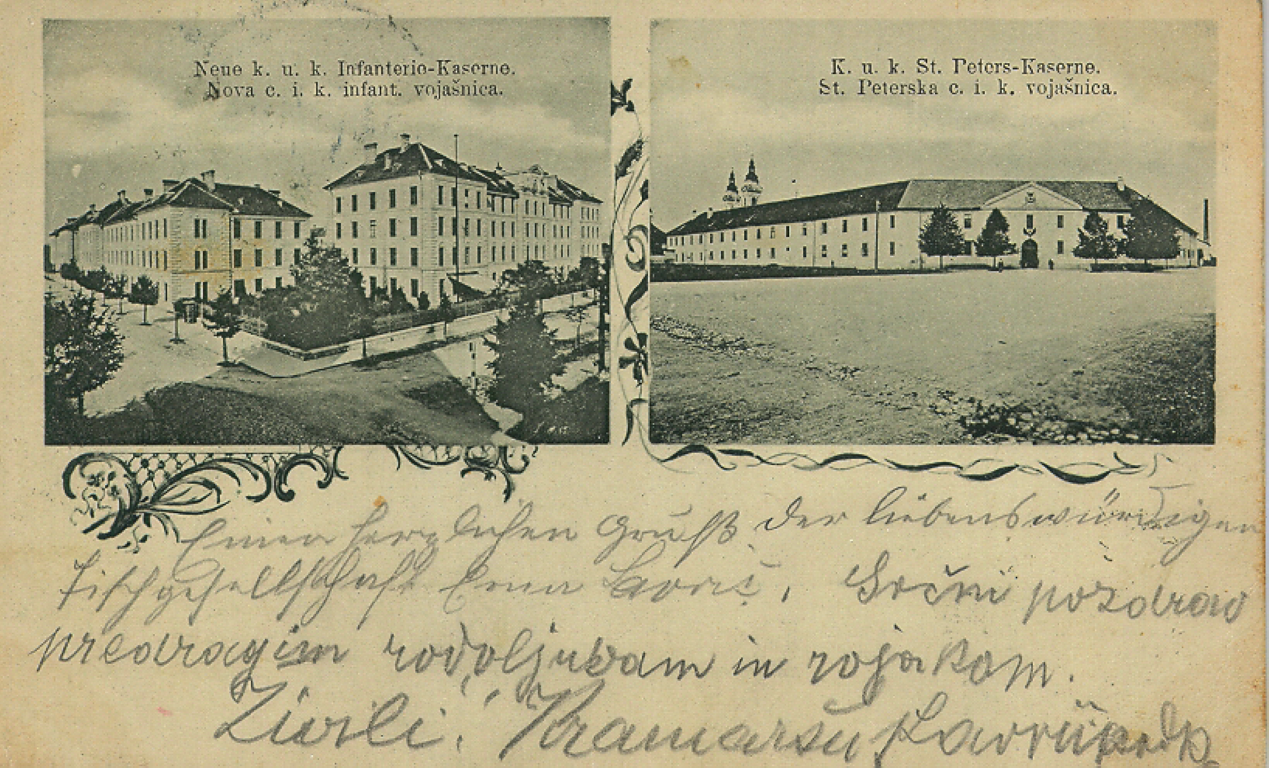 Neue k. u. k. Infanterie-Kaserne.
Nova c. i. k. infant. vojašnica.
K. u. k. St. Peters-Kaserne.
St. Peterska c. i. k. vojašnica.
Einen herzlichen Gruß der liebenswürdigen
Tischgesellschaft Erna. Srčni pozdrav
predragim rodoljubam in rojakom.
Živili!